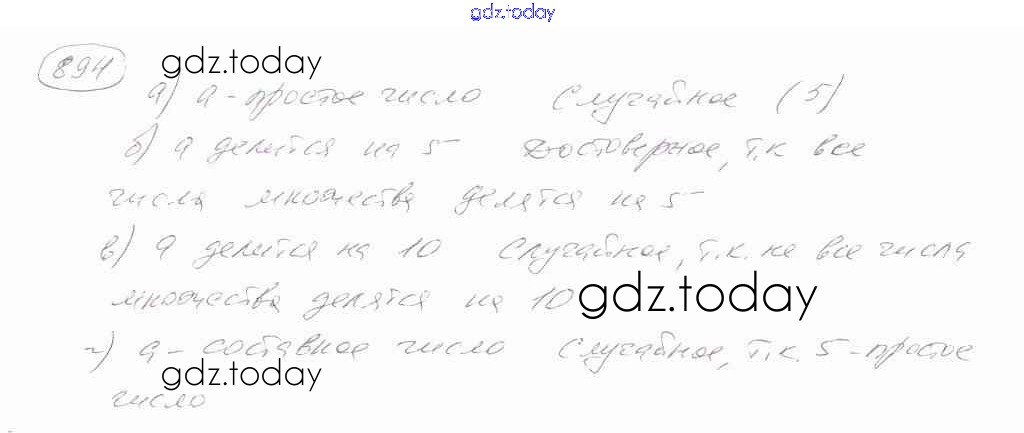 gdz.today
894 gdz.today
а) а - простое число Случайное (5)
б) а делится на 5 Достоверное, т.к все
числа множества делятся на 5
в) а делится на 10 Случайное, т.к. не все числа
множества делятся на 10 gdz.today
г) а - составное число Случайное, т.к. 5 - простое
gdz.today
число